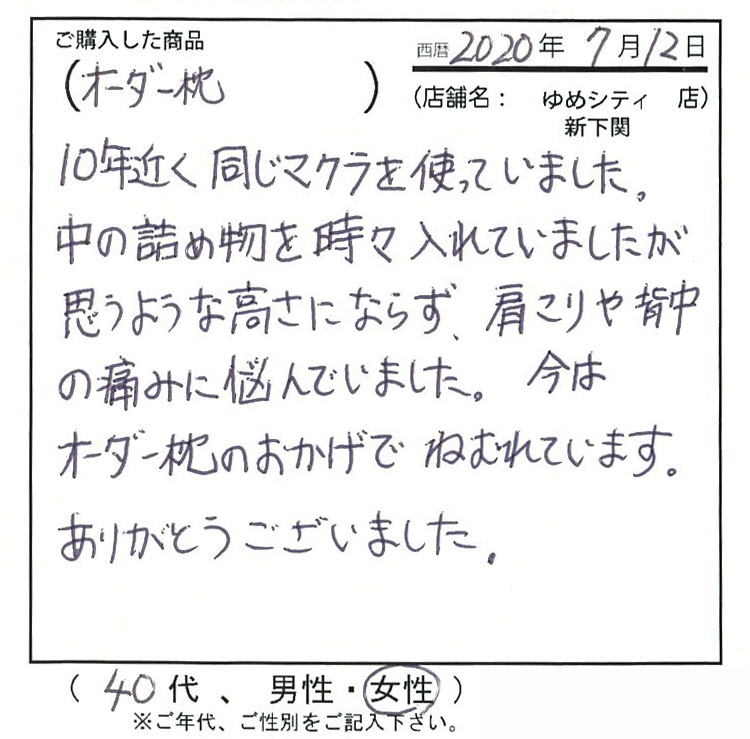 ご購入した商品
西暦2020年 7月12日
(オーダー枕)
(店舗名： ゆめシティ 店)
新下関
10年近く同じマクラを使っていました。
中の詰め物を時々入れていましたが
思うような高さにならず、肩こりや背中
の痛みに悩んでいました。今は
オーダー枕のおかげでねむれています。
ありがとうございました。
(40代、男性・女性)
※ご年代、ご性別をご記入下さい。